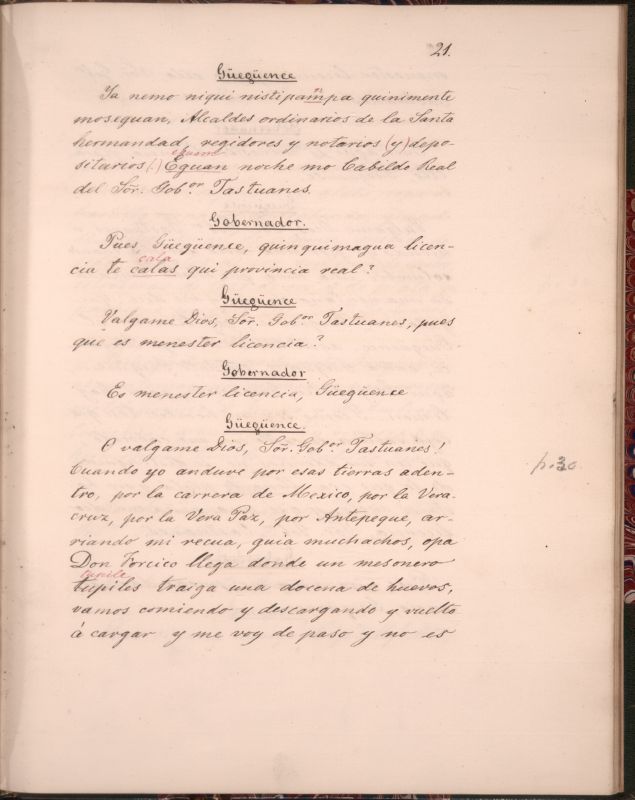 21.
Güegüence
Ya nemo niqui nistipampa quinimente
mosequan, Alcaldes ordinarios de la Santa
hermandad, regidores y notarios (y) depo-
situarios (.) Eguan noche mo Cabildo Real
del Sór. Gob.or Tastuanes.
Gobernador.
Pues, Güegüence, quinquimagua licen-
cia te calas qui provincia real?
cala
Güegüence
Valgame Dios, Sór. Gob.or Tastuanes, pues
que es menester licencia?
Gobernador
Es menester licencia, Güegüence
Güegüence.
O valgame Dios, Sór. Gob.or Tastuanes!
Cuando yo anduve por esas tierras aden-
tro, por la carrera de Mexico, por la Vera-
cruz, por la Vera Paz, por Antepeque, ar-
riando mi recua, guia muchachos, opa
Don Forcico llega donde un mesonero
tupile
tupiles traiga una docena de huevos,
vamos comiendo y descargando y vuelto
á cargar y me voy de paso y no es